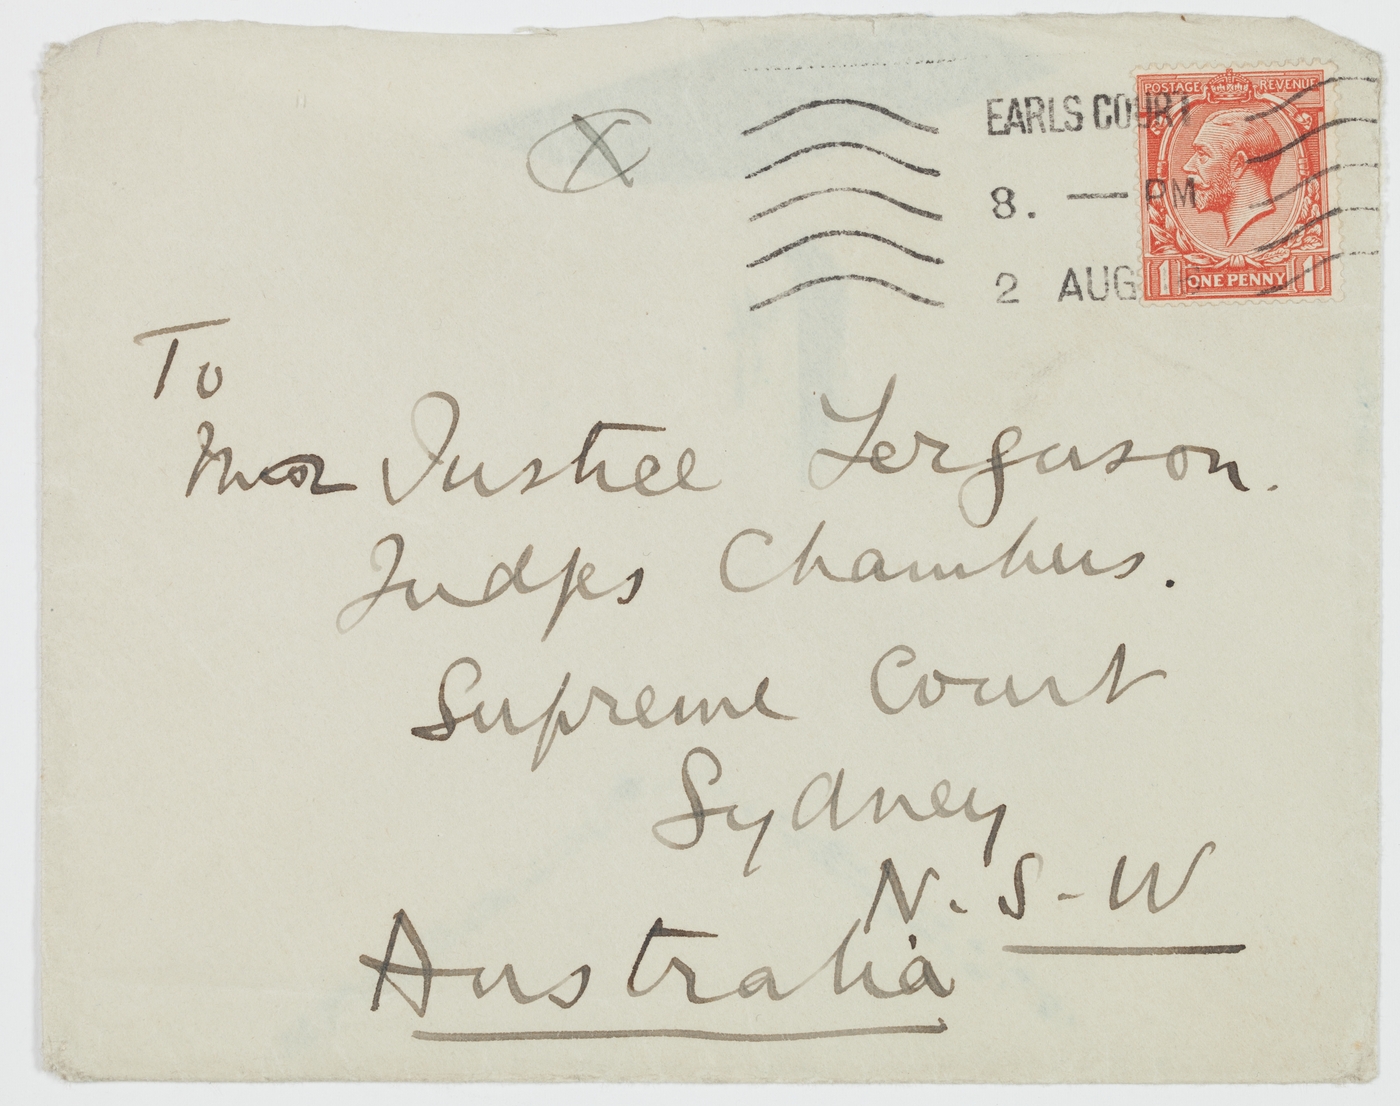 POSTAGE REVENUE
EARLS COURT
8. — PM
2 AUG 16
1 ONE PENNY 1
X
To
Mr Justice Ferguson.
Judges Chambers.
Supreme Court
Sydney
N.S-W
Australia